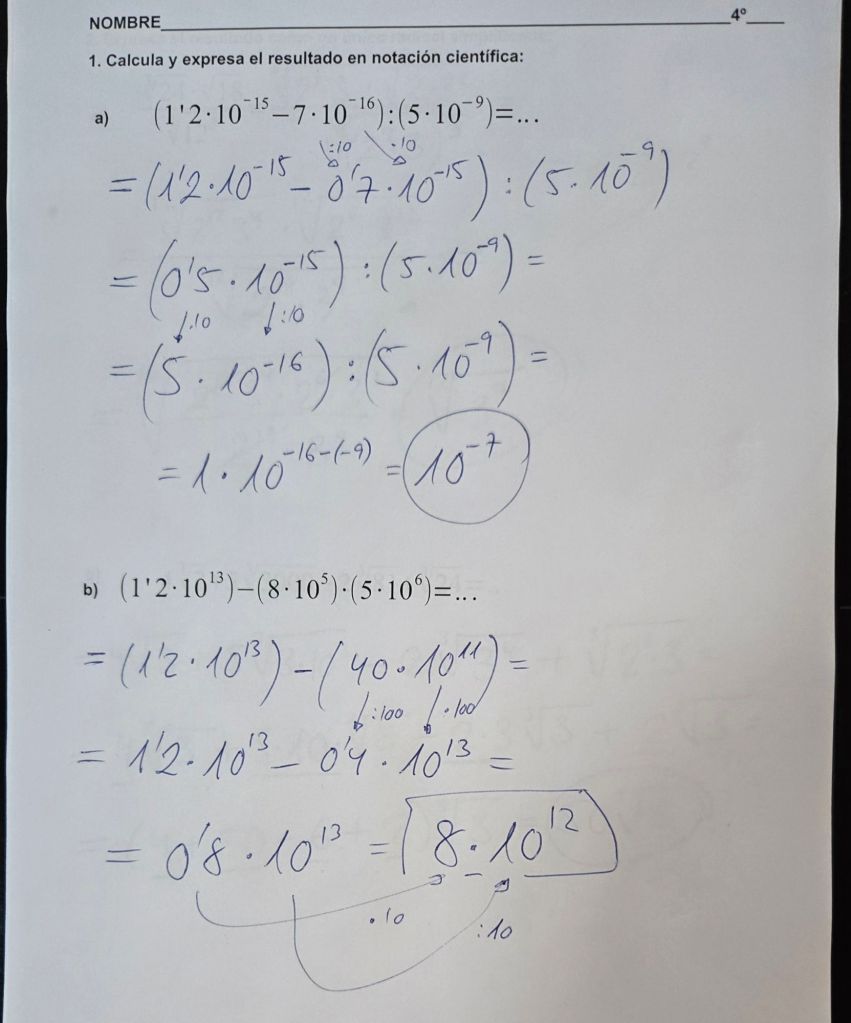 NOMBRE____ 4º____
1. Calcula y expresa el resultado en notación científica:
a) (1'2·10⁻¹⁵−7·10⁻¹⁶):(5·10⁻⁹)=...
:10 ·10
=(1'2·10⁻¹⁵ − 0'7·10⁻¹⁵) : (5·10⁻⁹)
=(0'5·10⁻¹⁵) : (5·10⁻⁹) =
·10 :10
=(5·10⁻¹⁶) : (5·10⁻⁹) =
= 1·10⁻¹⁶⁻⁽⁻⁹⁾ = 10⁻⁷
b) (1'2·10¹³)−(8·10⁵)·(5·10⁶)=...
= (1'2·10¹³) − (40·10¹¹) =
:100 ·100
= 1'2·10¹³ − 0'4·10¹³ =
= 0'8·10¹³ = 8·10¹²
·10 :10